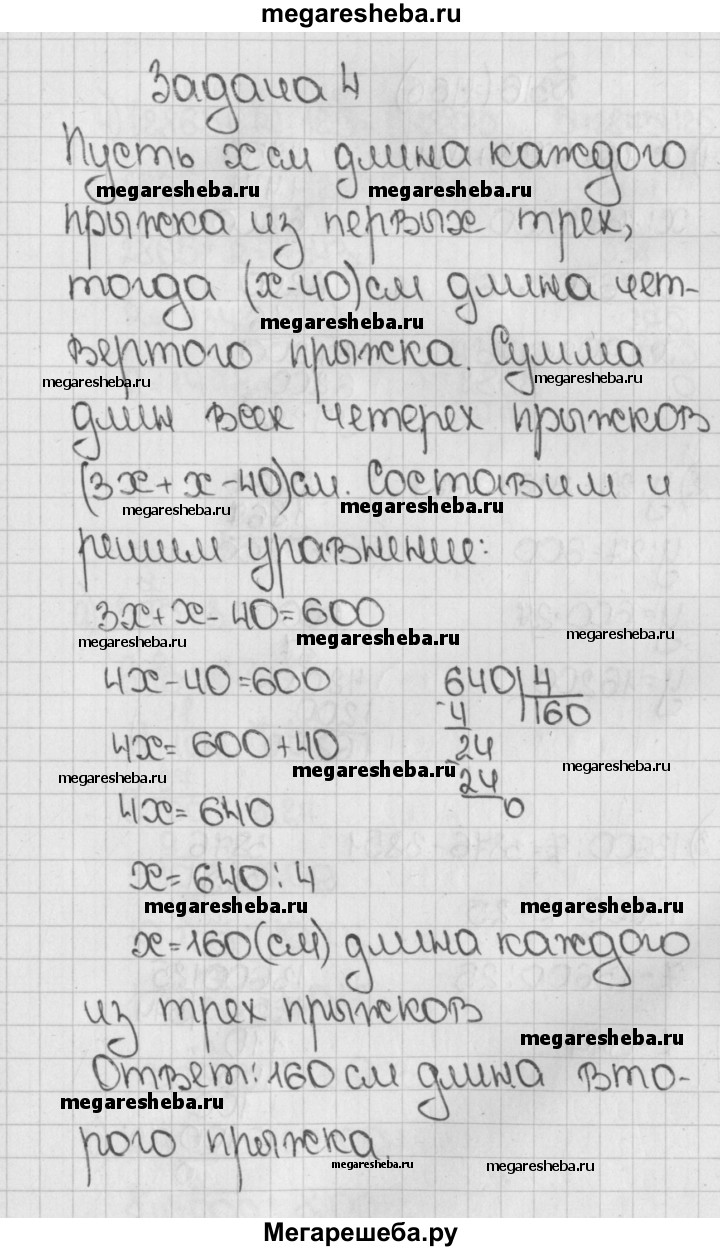 megaresheba.ru
Задача 4
Пусть x см длина каждого
megaresheba.ru megaresheba.ru
прыжка из первых трех,
тогда (x-40)см длина чет-
megaresheba.ru
вертого прыжка. Сумма
megaresheba.ru megaresheba.ru
длин всех четерех прыжков
(3x+x-40)см. Составим и
megaresheba.ru megaresheba.ru
решим уравнение:
3x+x-40=600
megaresheba.ru megaresheba.ru megaresheba.ru
4x-40=600 640 4
-4 160
4x=600+40 -24
megaresheba.ru megaresheba.ru megaresheba.ru
24
4x=640 0
x=640:4
megaresheba.ru megaresheba.ru
x=160(см) длина каждого
из трех прыжков
megaresheba.ru
Ответ: 160 см длина вто-
megaresheba.ru
рого прыжка.
megaresheba.ru megaresheba.ru
Мегарешеба.ру